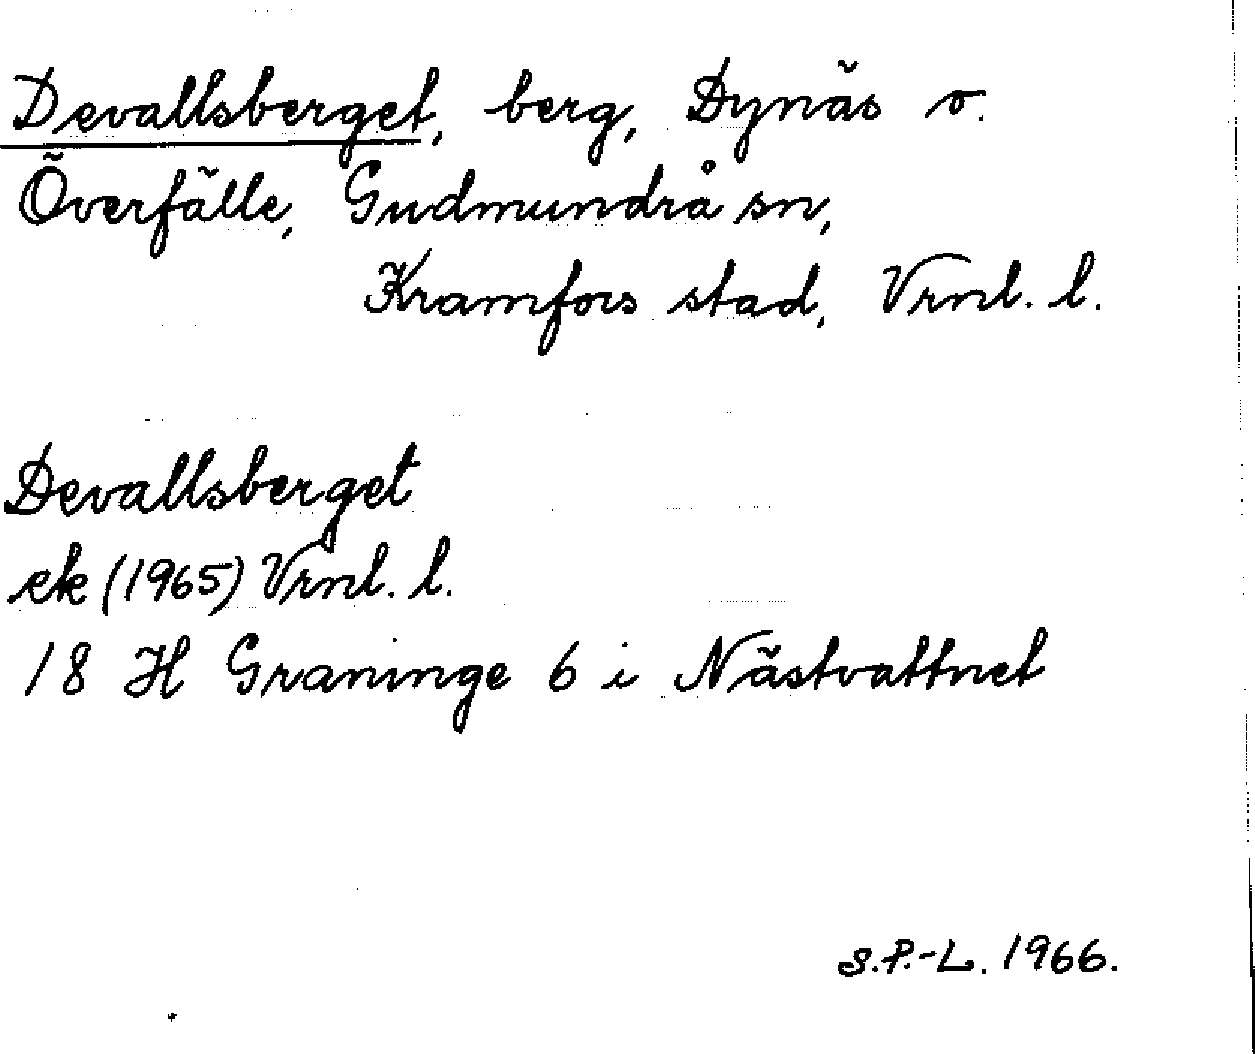 Devallsberget, berg, Dynäs o.
Överfälle, Gudmundrå sn,
Kramfors stad, Vrnl. l.
Devallsberget
ek (1965) Vrnl. l.
18 H Graninge 6 i Nästvattnet
S.P.-L. 1966.